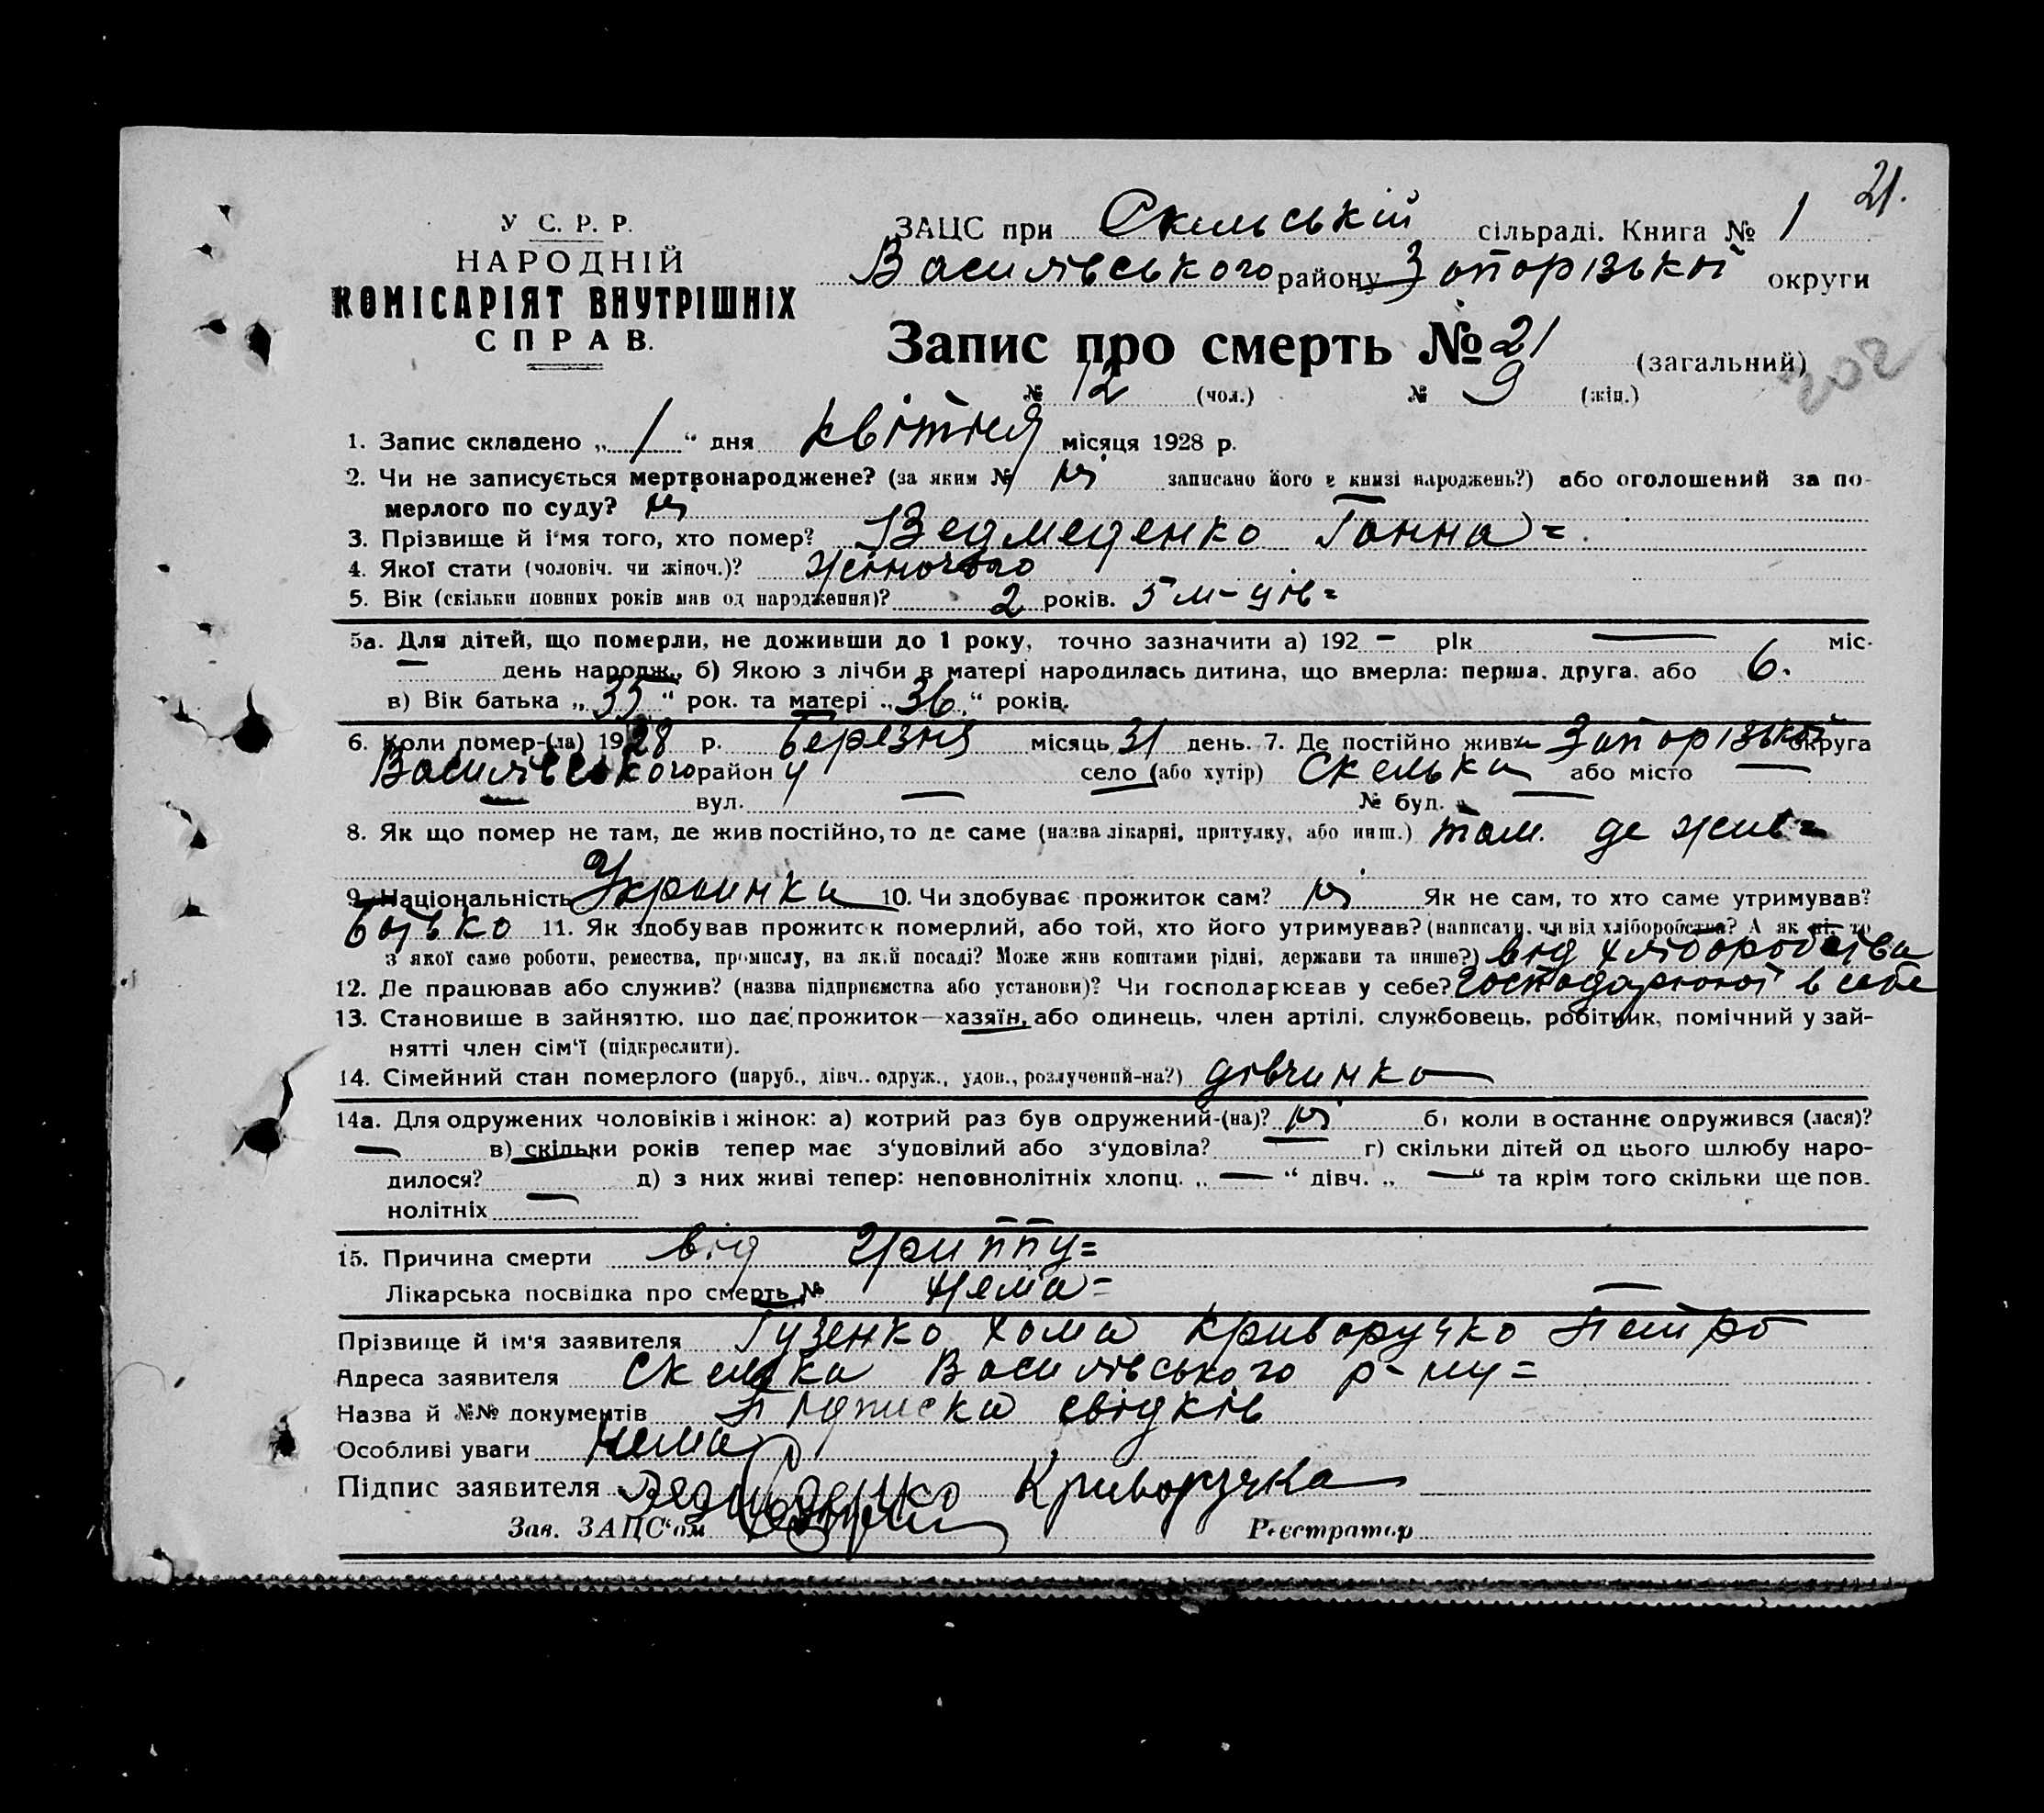 21.
У С. Р. Р.
НАРОДНІЙ
КОМІСАРІЯТ ВНУТРІШНІХ
СПРАВ.
ЗАЦС при Скельській сільраді. Книга № 1
Василівського району Запорізької округи
Запис про смерть № 21 (загальний)
№ 12 (чол.) № 9 (жін.)
1. Запис складено „ 1 “ дня квітня місяця 1928 р.
2. Чи не записується мертвонароджене? (за яким № ні записано його в книзі народжень?) або оголошений за по-
мерлого по суду? ні
3. Прізвище й ім'я того, хто помер? Ведмеденко Ганна =
4. Якої стати (чоловіч. чи жіноч.)? жіночого
5. Вік (скільки повних років мав од народження)? 2 років. 5 м-ців =
5а. Для дітей, що померли, не доживши до 1 року, точно зазначити а) 192 — рік — міс-
— день народж., б) Якою з лічби в матері народилась дитина, що вмерла: перша, друга, або 6.
в) Вік батька „ 35 “ рок. та матері „ 36 “ років.
6. Коли помер-(ла) 1928 р. березня місяць 31 день. 7. Де постійно жив Запорізької округа
Василівського району село (або хутір) Скельки або місто —
— вул. — № буд. —
8. Як що помер не там, де жив постійно, то де саме (назва лікарні, притулку, або инш.) там де жив =
9. Національність Украинка 10. Чи здобуває прожиток сам? ні Як не сам, то хто саме утримував?
батько 11. Як здобував прожиток померлий, або той, хто його утримував? (написати, чи від хліборобства? А як ні, то
з якої саме роботи, ремества, промислу, на якій посаді? Може жив коштами рідні, держави та инше?) від хліборобства
12. Де працював або служив? (назва підприємства або установи)? Чи господарював у себе? в себе
13. Становище в зайняттю, що дає прожиток—хазяїн, або одинець, член артілі, службовець, робітник, помічний у зай-
нятті член сім'ї (підкреслити).
14. Сімейний стан померлого (паруб., дівч., одруж., удов., розлучений-на?) дівчинка
14а. Для одружених чоловіків і жінок: а) котрий раз був одружений-(на)? ні б) коли востаннє одружився (лася)?
— в) скільки років тепер має з'удовілий або з'удовіла? — г) скільки дітей од цього шлюбу наро-
дилося? д) з них живі тепер: неповнолітніх хлопц. „ — “ дівч. „ — “ та крім того скільки ще пов.
нолітніх —
15. Причина смерти від гриппу =
Лікарська посвідка про смерть № нема =
Прізвище й ім'я заявителя Гузенко Хома Криворучко Петро
Адреса заявителя Скелька Василівського р-ну =
Назва й №№ документів Підписка свідків
Особливі уваги нема
Підпис заявителя Криворучка
Зав. ЗАЦС'ом Реєстратор